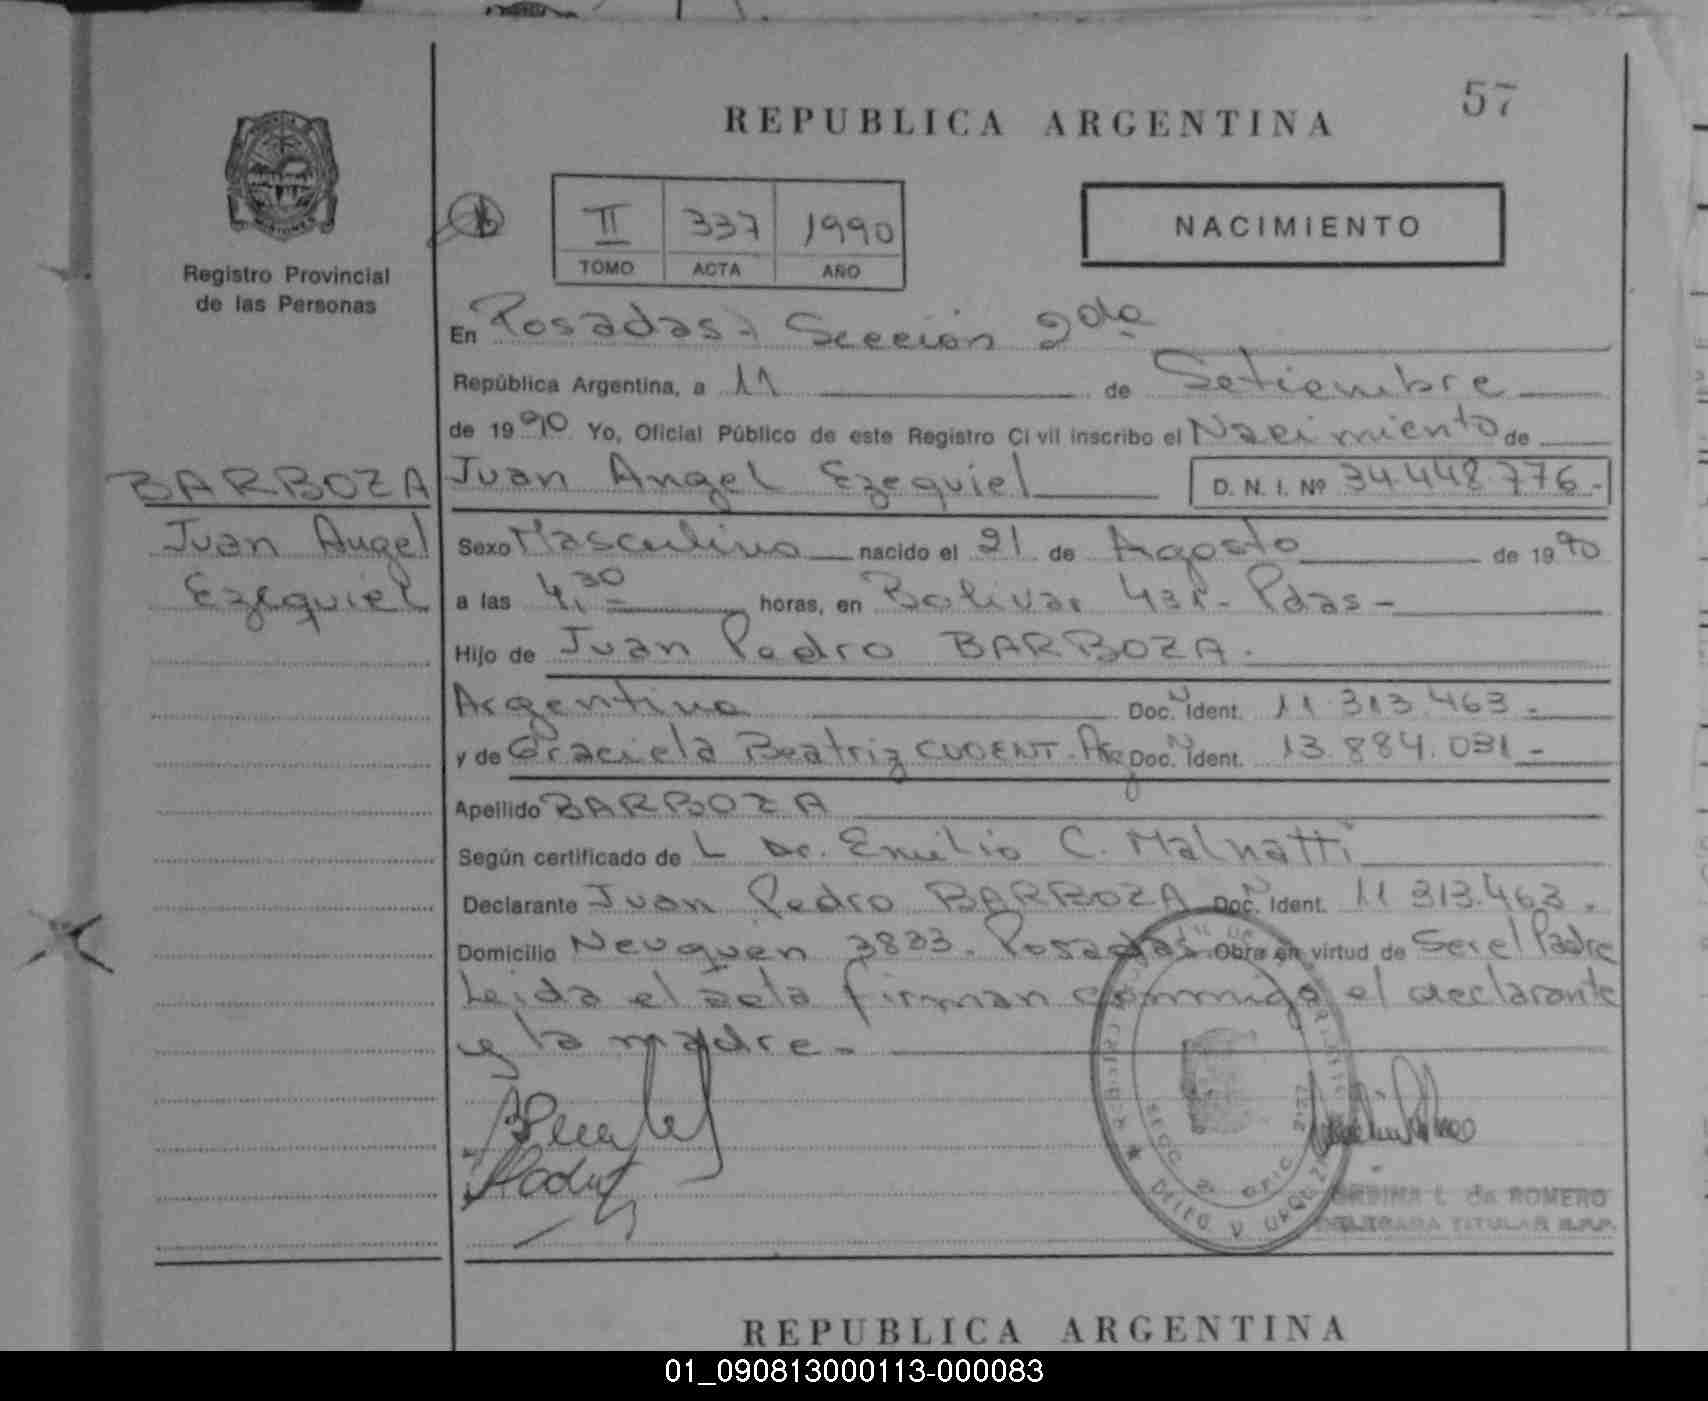 57
REPUBLICA ARGENTINA
NACIMIENTO
II 337 1990
TOMO ACTA AÑO
Registro Provincial
de las Personas
En Posadas, Sección 2da
República Argentina, a 11 de Setiembre
de 1990 Yo, Oficial Público de este Registro Civil inscribo el Nacimiento de
BARBOZA
Juan Angel
Ezequiel
Juan Angel Ezequiel D. N. I. Nº 34.448.776.-
Sexo Masculino nacido el 21 de Agosto de 1990
a las 4,30 horas, en Bolivar Pdas-
Hijo de Juan Pedro BARBOZA.
Argentino Doc. N Ident. 11.313.463.-
y de Graciela Beatriz Arg Doc. N Ident. 13.884.031-
Apellido BARBOZA
Según certificado de L Dr. Emilio C. Malnatti
Declarante Juan Pedro BARBOZA Doc. N Ident. 11 313.463.
Domicilio Neuquén 3833. Posadas. Obra en virtud de Ser el Padre
Leida el acta firman conmigo el declarante
y la madre.-
SECC. 2
L. de ROMERO
DELEGADA TITULAR R.P.P.
REPUBLICA ARGENTINA
01_090813000113-000083